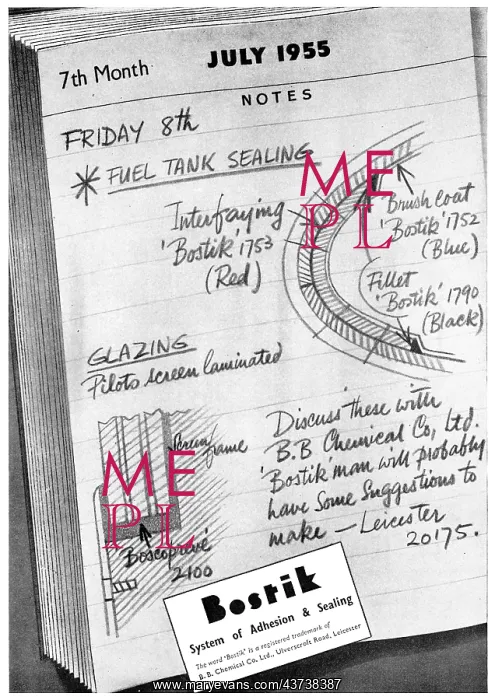 7th Month
JULY 1955
NOTES
FRIDAY 8th
FUEL TANK SEALING
ME
PL
Interfaying
'Bostik' 1753
(Red)
Brush Coat
'Bostik' 1752
(Blue)
Fillet
'Bostik' 1790
(Black)
GLAZING
Pilots screen laminated
Screen
frame
ME
PL
Boscoprene
2100
Discuss these with
B.B Chemical Co, Ltd.
'Bostik' man will probably
have some suggestions to
make – Leicester
20175.
Bostik
System of Adhesion & Sealing
The word 'Bostik' is a registered trademark of
B.B. Chemical Co. Ltd., Ulverscroft Road, Leicester
www.maryevans.com/43738387